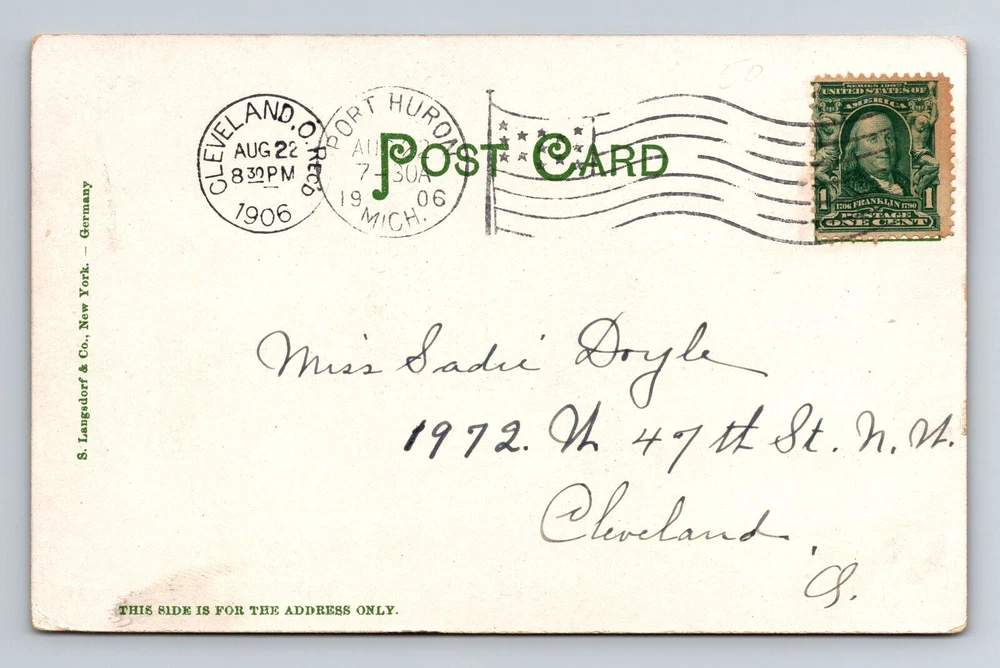 50
CLEVELAND, O. REC'D
AUG 22
8 30 PM
1906
PORT HURON
AU
7-30A
19 06
MICH.
POST CARD
SERIES 1902
UNITED STATES OF
AMERICA
1 1706 FRANKLIN 1790 1
POSTAGE
ONE CENT
S. Langsdorf & Co., New York. — Germany
Miss Sadie Doyle
1972. W 47th St. N. W.
Cleveland,
O.
THIS SIDE IS FOR THE ADDRESS ONLY.